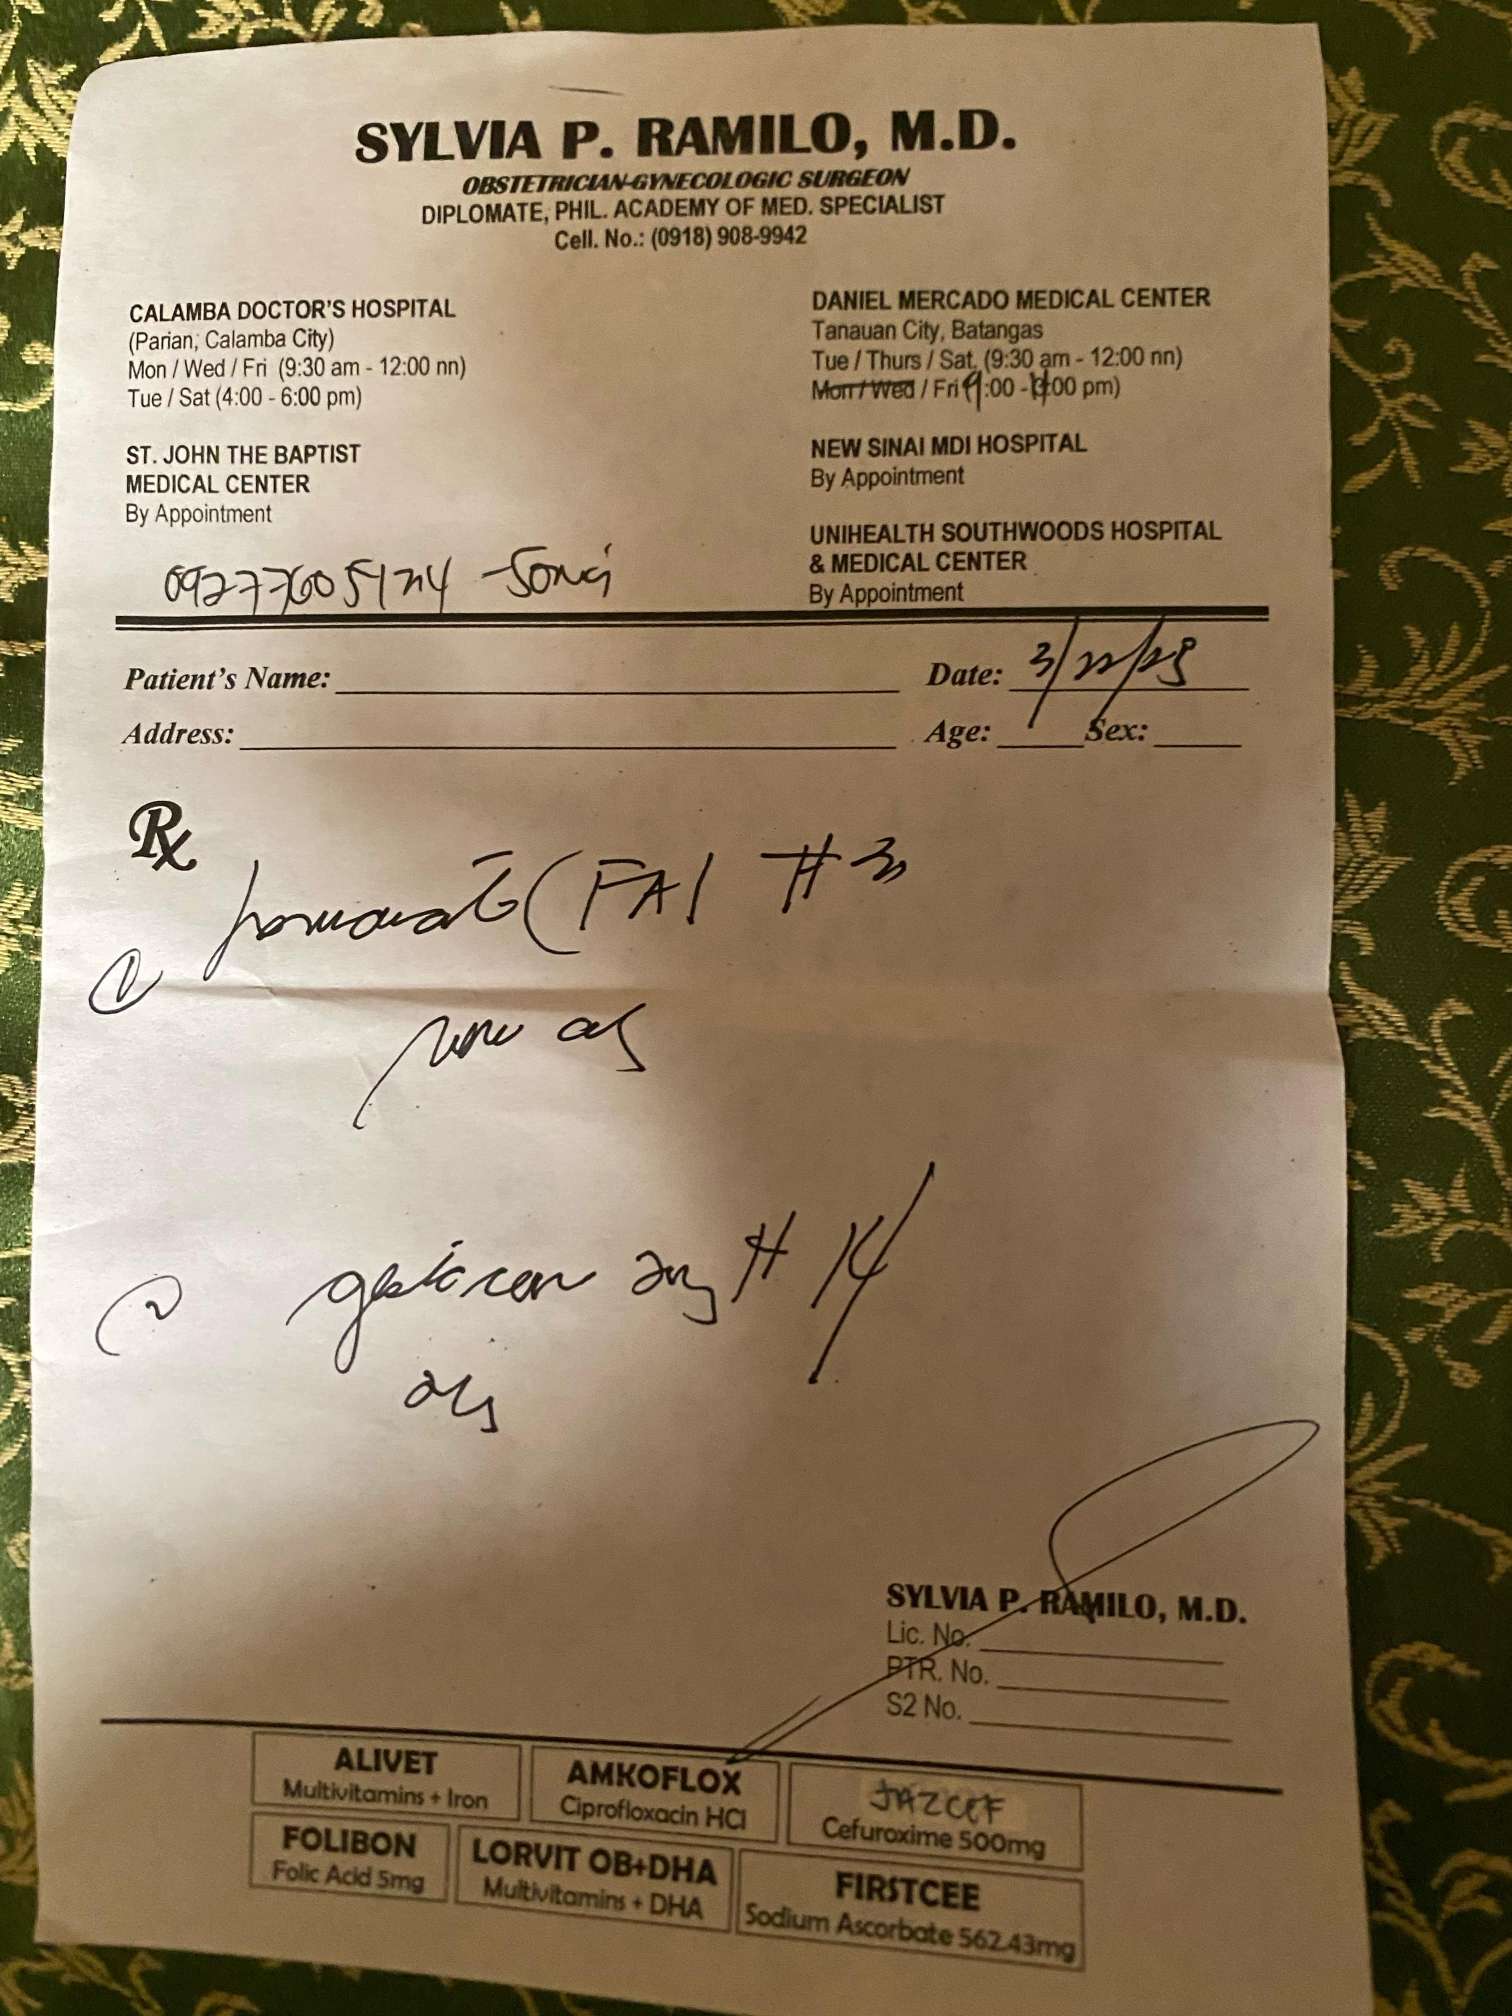 SYLVIA P. RAMILO, M.D.
OBSTETRICIAN-GYNECOLOGIC SURGEON
DIPLOMATE, PHIL. ACADEMY OF MED. SPECIALIST
Cell. No.: (0918) 908-9942
CALAMBA DOCTOR'S HOSPITAL
(Parian, Calamba City)
Mon / Wed / Fri (9:30 am - 12:00 nn)
Tue / Sat (4:00 - 6:00 pm)
ST. JOHN THE BAPTIST
MEDICAL CENTER
By Appointment
DANIEL MERCADO MEDICAL CENTER
Tanauan City, Batangas
Tue / Thurs / Sat, (9:30 am - 12:00 nn)
Mon / Wed / Fri :00 - :00 pm)
NEW SINAI MDI HOSPITAL
By Appointment
UNIHEALTH SOUTHWOODS HOSPITAL
& MEDICAL CENTER
By Appointment
Patient's Name:
Date: 3/22/25
Address:
Age: Sex:
Rx
(FA) #
1
2 #14
SYLVIA P. RAMILO, M.D.
Lic. No.
PTR. No.
S2 No.
ALIVET
Multivitamins + Iron
AMKOFLOX
Ciprofloxacin HCl
JAZCEF
Cefuroxime 500mg
FOLIBON
Folic Acid 5mg
LORVIT OB+DHA
Multivitamins + DHA
FIRSTCEE
Sodium Ascorbate 562.43mg